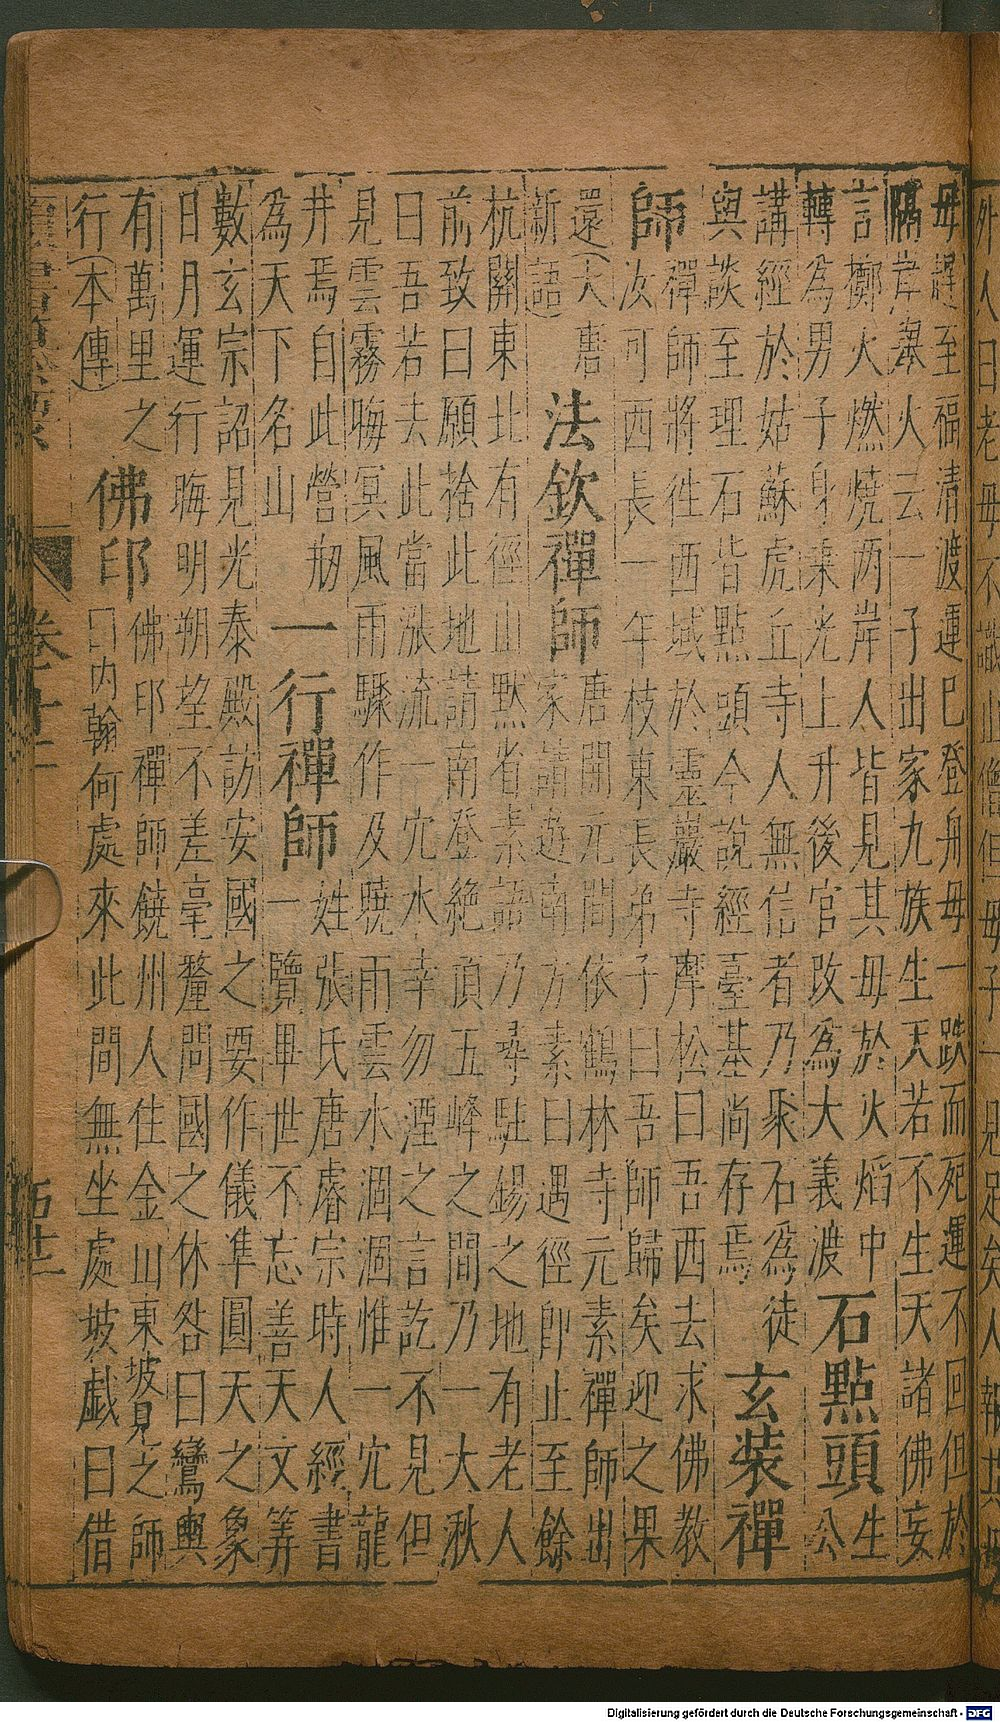 外人曰老母不識止僧但一母子一見足矣人報其母
毋趕至福清渡運已登舟毋一跌而死運不回但於
隔岸舉火云一子出家九族生天若不生天諸佛妄
言擲火燃燒两岸人皆見其毋於火焰中
轉為男子身乘光上升後官改為大義渡
石點頭
生公
講經於姑蘇虎丘寺人無信者乃聚石為徒
與談至理石皆點頭今說經臺基尚存焉
玄裝禪
師
禪師將徃西域於靈巖寺摩松曰吾西去求佛教
汝可西長一年枝東長弟子曰吾師歸矣迎之果
還(大唐
新語)
法欽禪師
唐開元間依鶴林寺元素禪師出
家請遊南方素曰遇徑即止至餘
杭關東北有徑山黙省素語乃尋駐錫之地有老人
前致曰願捨此地請南登絶頂五峰之間乃一大湫
曰吾若去此當漲流一穴水幸勿湮之言訖不見但
見雲霧晦冥風雨驟作及曉雨雲水涸涸惟一穴龍
井焉自此營刱
為天下名山
一行禪師
姓張氏唐睿宗時人經書
一覽畢世不忘善天文筭
數玄宗詔見光泰殿訪安國之要作儀準圓天之象
日月運行晦明朔望不差毫釐問國之休咎曰鸞輿
有萬里之
行(本傳)
佛印
佛印禪師饒州人住金山東坡見之師
曰内翰何處來此間無坐處坡戯曰借
卷
Digitalisierung gefördert durch die Deutsche Forschungsgemeinschaft - DFG